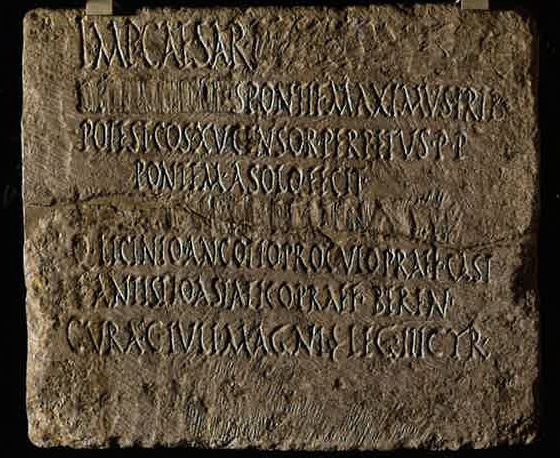 IMP·CAESAR
PONTIF·MAXIMVS·TRIB
POTEST·COS·XV·CENSOR·PERPETVS·P·P
PONTEM·A·SOLO·FECIT
Q·LICINIO·ANCOTIO·PROCVLO·PRAEF·CAST
ANTISTIO·ASIATICO·PRAEF·BEREN
CVRA·C·IVLI·MAGNI·LEG·III·CYR